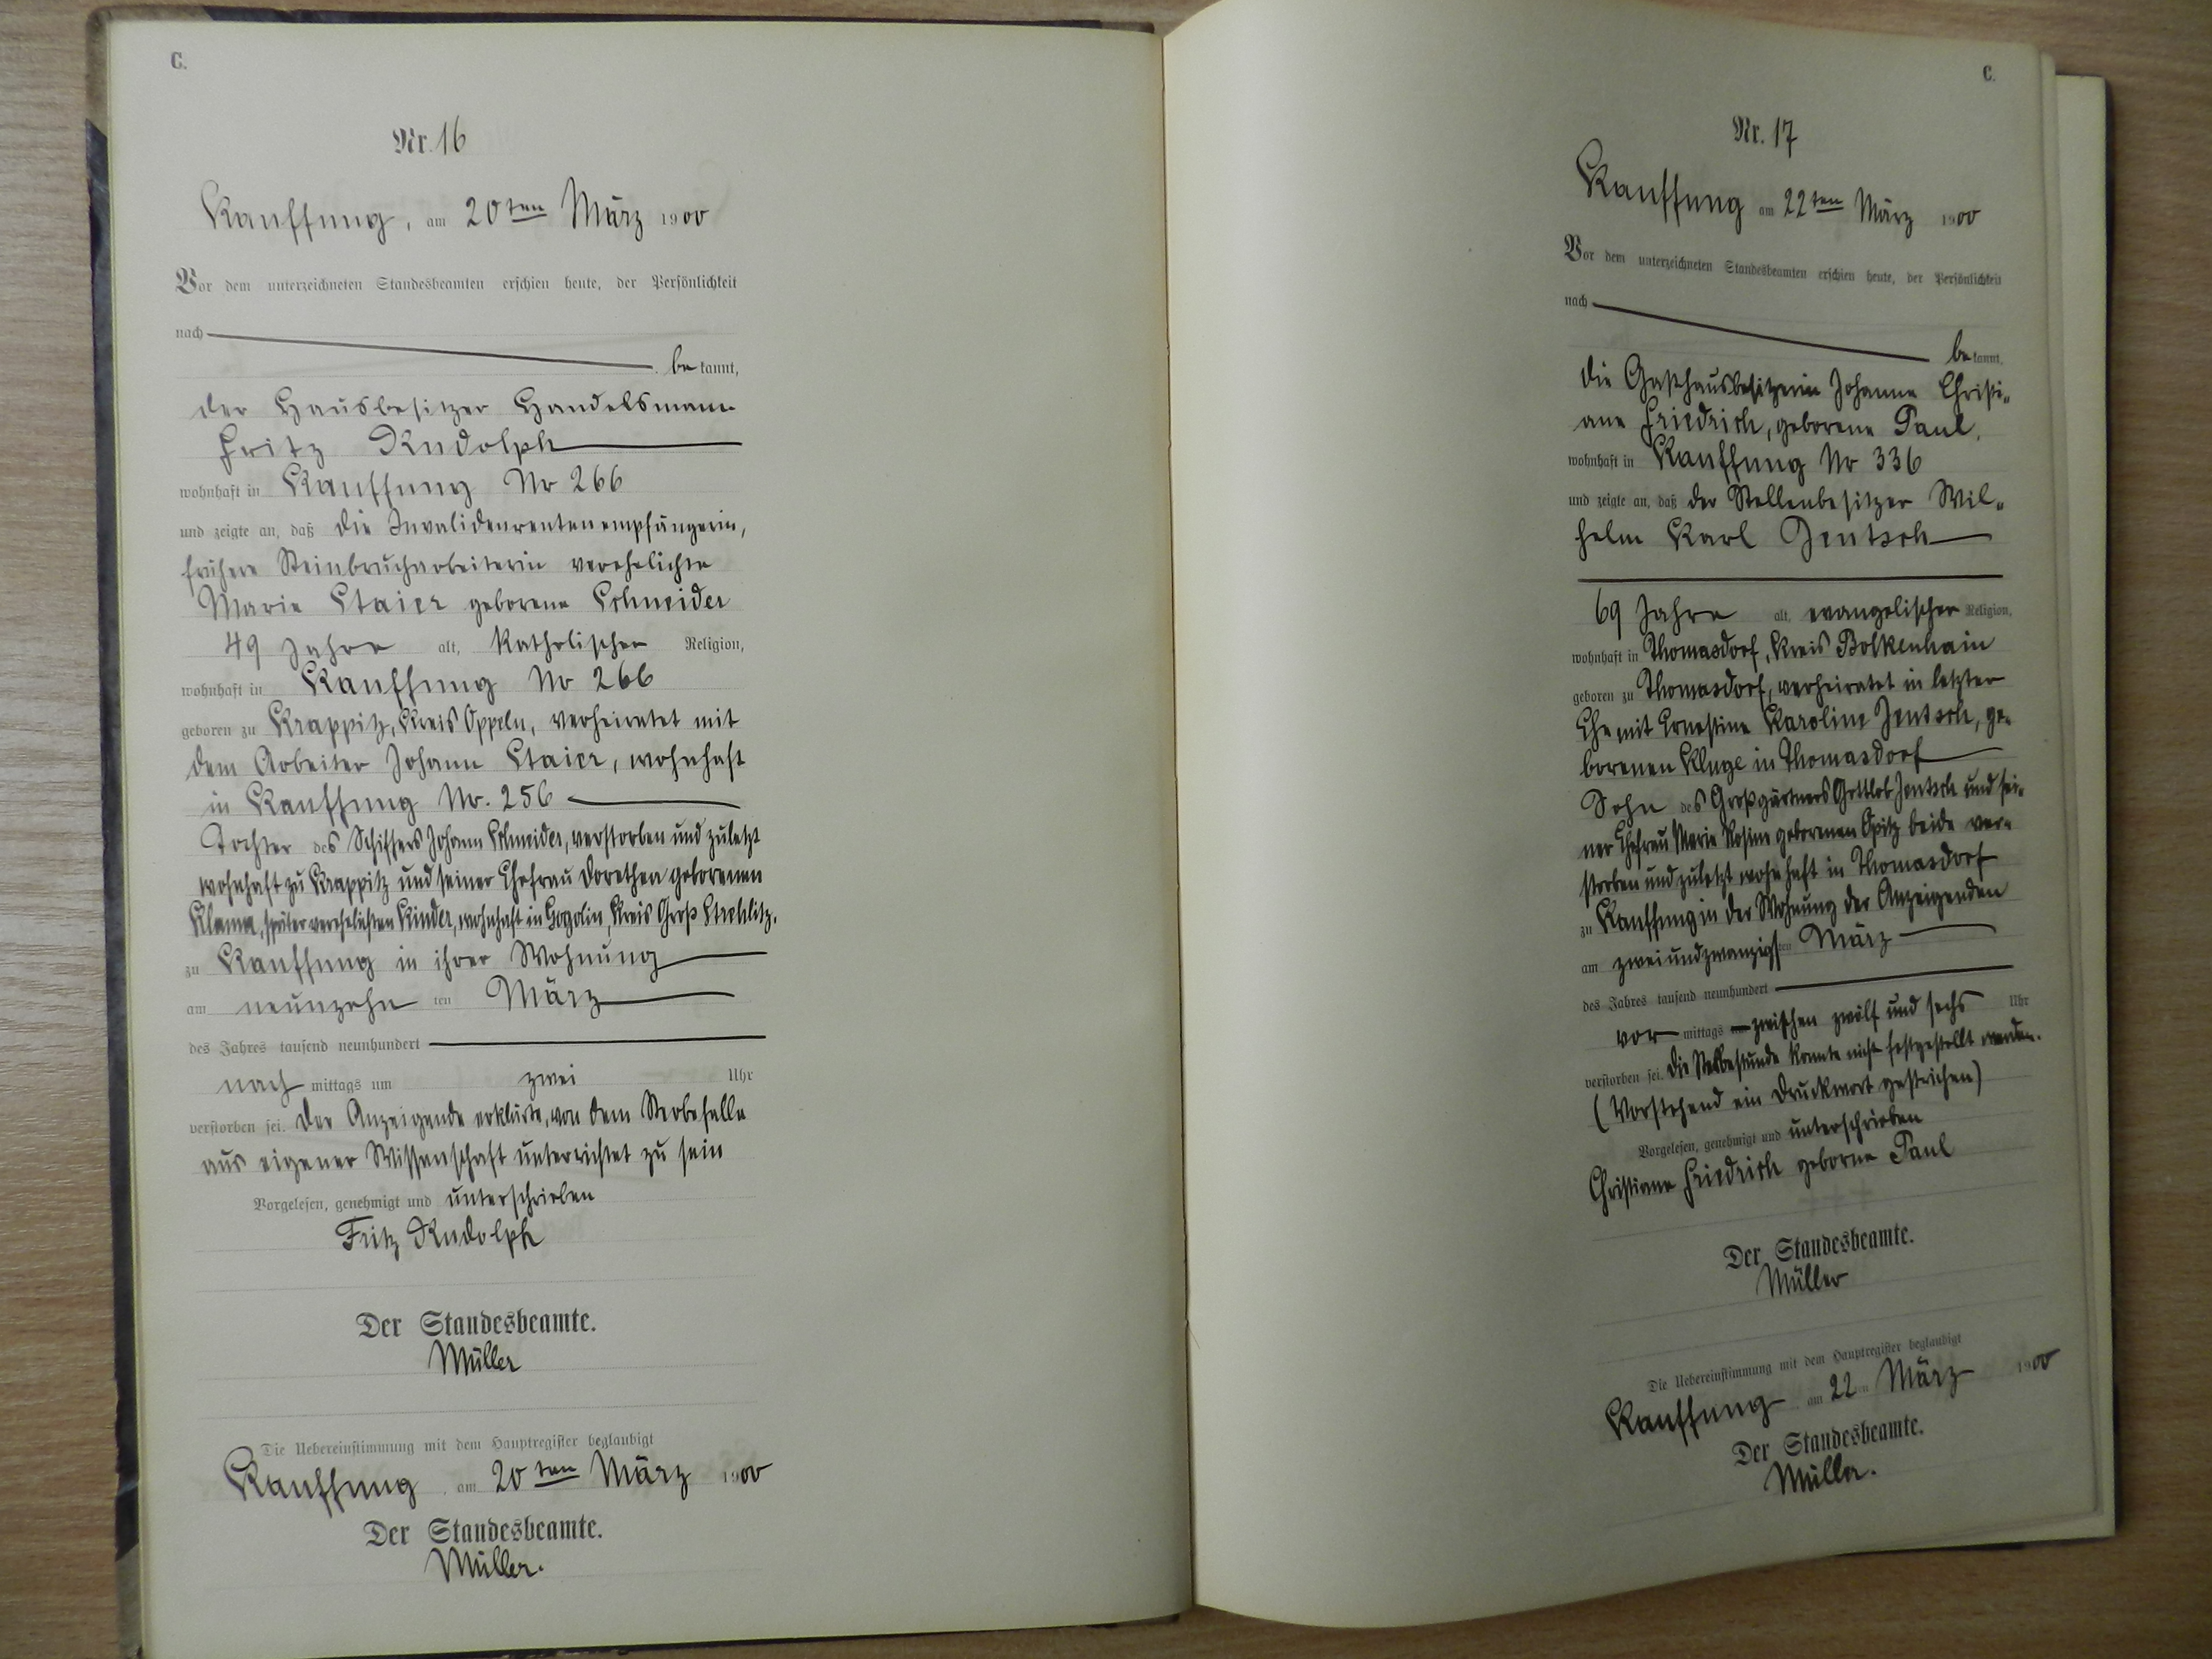 C.
Nr. 16
Kauffung, am 20ten März 1900
Vor dem unterzeichneten Standesbeamten erschien heute, der Persönlichkeit
nach
be kannt,
der Hausbesitzer Handelsmann
Fritz Rudolph
wohnhaft in Kauffung No 266
und zeigte an, daß die Invalidenrentenempfängerin,
frühere Steinbrucharbeiterin verehelichte
Marie Staier geborene Schneider
49 Jahre alt, katholischer Religion,
wohnhaft in Kauffung No 266
geboren zu Krappitz, Kreis Oppeln, verheiratet mit
dem Arbeiter Johann Staier, wohnhaft
in Kauffung No. 256
Tochter des Schiffers Johann Schneider, verstorben und zuletzt
wohnhaft zu Krappitz und seiner Ehefrau Dorothea geborenen
später verehelichten Kinder, wohnhaft in Gogolin, Kreis Groß Strehlitz.
zu Kauffung in ihrer Wohnung
am neunzehn ten März
des Jahres tausend neunhundert
nach mittags um zwei Uhr
verstorben sei. Der Anzeigende erklärte, von dem Sterbefalle
aus eigener Wissenschaft unterrichtet zu sein
Vorgelesen, genehmigt und unterschrieben
Fritz Rudolph
Der Standesbeamte.
Müller
Die Uebereinstimmung mit dem Hauptregister beglaubigt
Kauffung am 20ten März 1900
Der Standesbeamte.
Müller.
C.
Nr. 17
Kauffung am 22ten März 1900
Vor dem unterzeichneten Standesbeamten erschien heute, der Persönlichkeit
nach
be kannt,
die Gasthausbesitzerin Johanne Christi-
ane Friedrich, geborene Paul,
wohnhaft in Kauffung No 336
und zeigte an, daß der Stellenbesitzer Wil-
helm Karl Jentsch
69 Jahre alt, evangelischer Religion,
wohnhaft in Thomasdorf, Kreis Bolkenhain
geboren zu Thomasdorf, verheiratet in letzter
Ehe mit Ernestine Karoline Jentsch, ge-
borenen Kluge in Thomasdorf
Sohn des Großgärtners Gottlob Jentsch und sei-
ner Ehefrau Marie Rosine geborenen Opitz beide ver-
storben und zuletzt wohnhaft in Thomasdorf
zu Kauffung in der Wohnung der Anzeigenden
am zweiundzwanzigsten März
des Jahres tausend neunhundert
vor mittags zwischen zwölf und sechs Uhr
verstorben sei. Die Sterbestunde konnte nicht festgestellt werden.
(Vorstehend ein Druckwort gestrichen)
Vorgelesen, genehmigt und unterschrieben
Christiane Friedrich geborne Paul
Der Standesbeamte.
Müller
Die Uebereinstimmung mit dem Hauptregister beglaubigt
Kauffung am 22ten März 1900
Der Standesbeamte.
Müller.